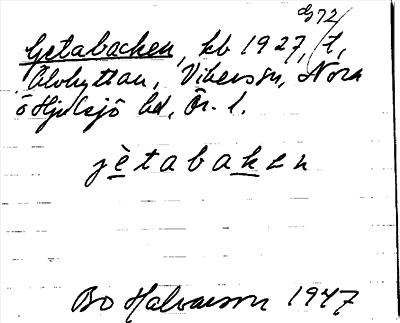 G72
Getabacken, kb 1927, t,
Älvhyttan, Vikers sn, Nora
o Hjulsjö bd, Ör. l.
jètabaken
Bo Halvarson 1947